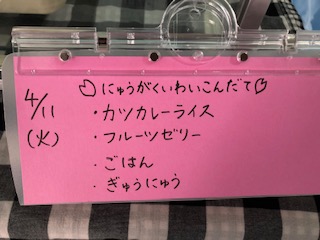 4/11
(火)
にゅうがくいわいこんだて
・カツカレーライス
・フルーツゼリー
・ごはん
・ぎゅうにゅう